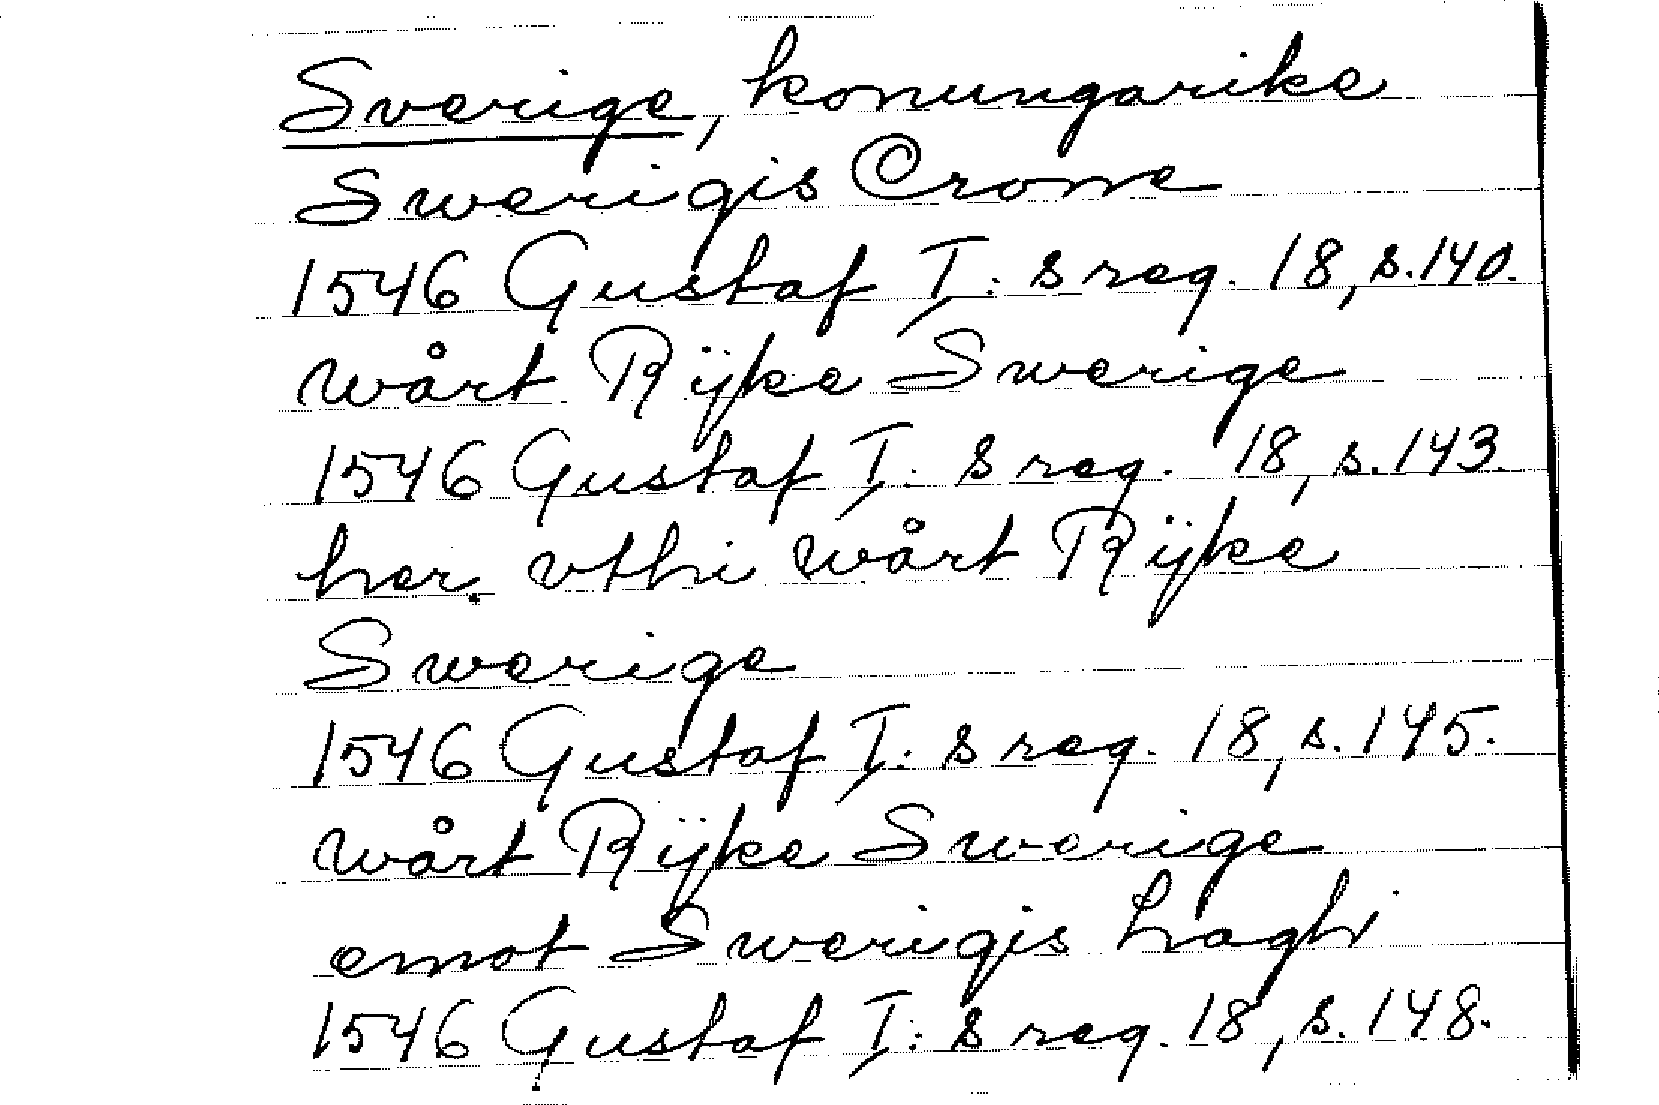 Sverige, konungarike
Swerigis Crone
1546 Gustaf I:s reg. 18, s. 140.
wårt Rijke Swerige
1546 Gustaf I:s reg. 18, s. 143.
her. vthi wårt Rijke
Swerige
1546 Gustaf I:s reg. 18, s. 145.
wårt Rijke Swerige
emot Swerigis Laghr
1546 Gustaf I:s reg. 18, s. 148.